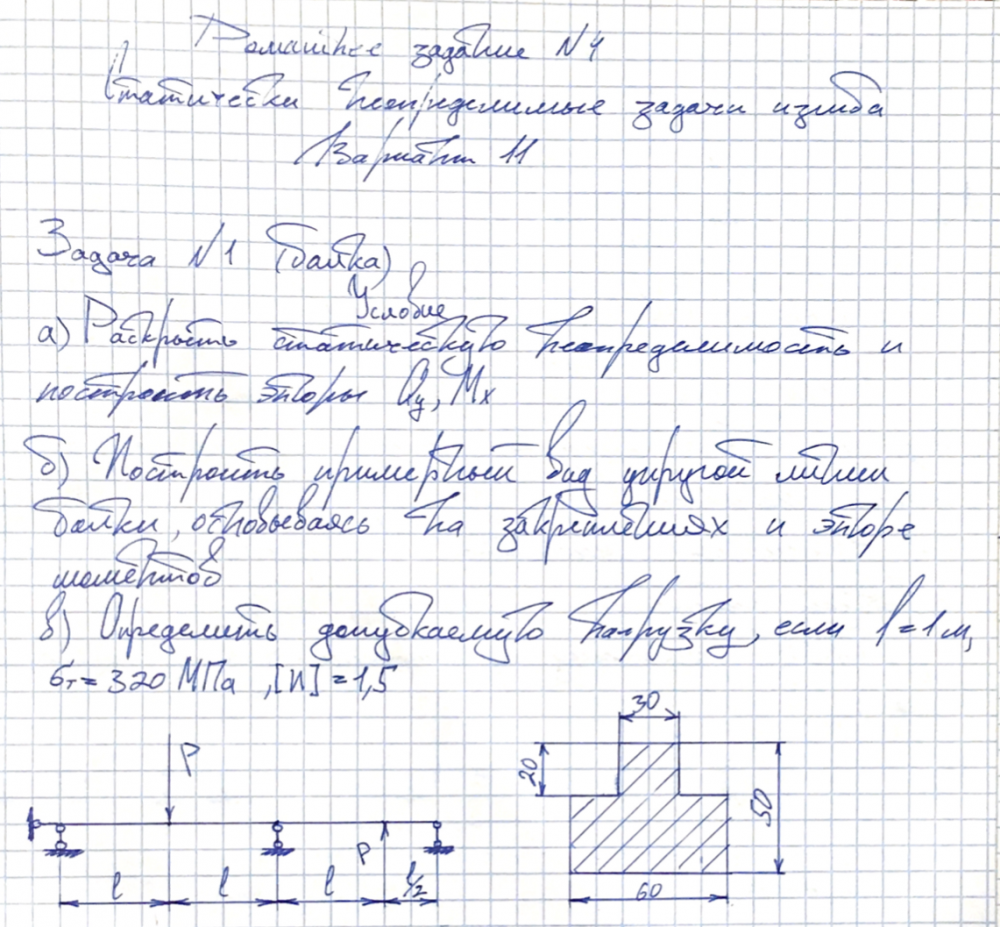 Домашнее задание №4
Статически неопределимые задачи изгиба
Вариант 11
Задача №1 (балка)
Условие
а) Раскрыть статическую неопределимость и
построить эпюры Qy, Mx
б) Построить примерный вид упругой линии
балки, основываясь на закреплениях и эпюре
моментов
в) Определить допускаемую нагрузку, если l=1м,
σт=320 МПа, [n]=1,5
30
P
20
50
P
l l l l/2
60